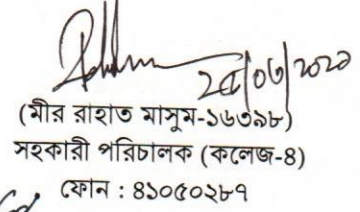 (মীর রাহাত মাসুম-১৬৩৯৮)
সহকারী পরিচালক (কলেজ-৪)
ফোন : ৪১০৫০২৮৭